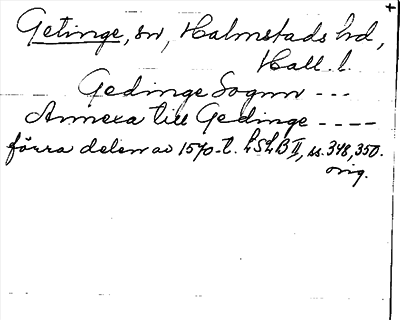 Getinge, sn, Halmstads hd,
Hall. l.
Gedinge Sognn ---
Annexa till Gedinge ----
förra delen av 1570-t. LSLB II, ss. 348, 350.
orig.